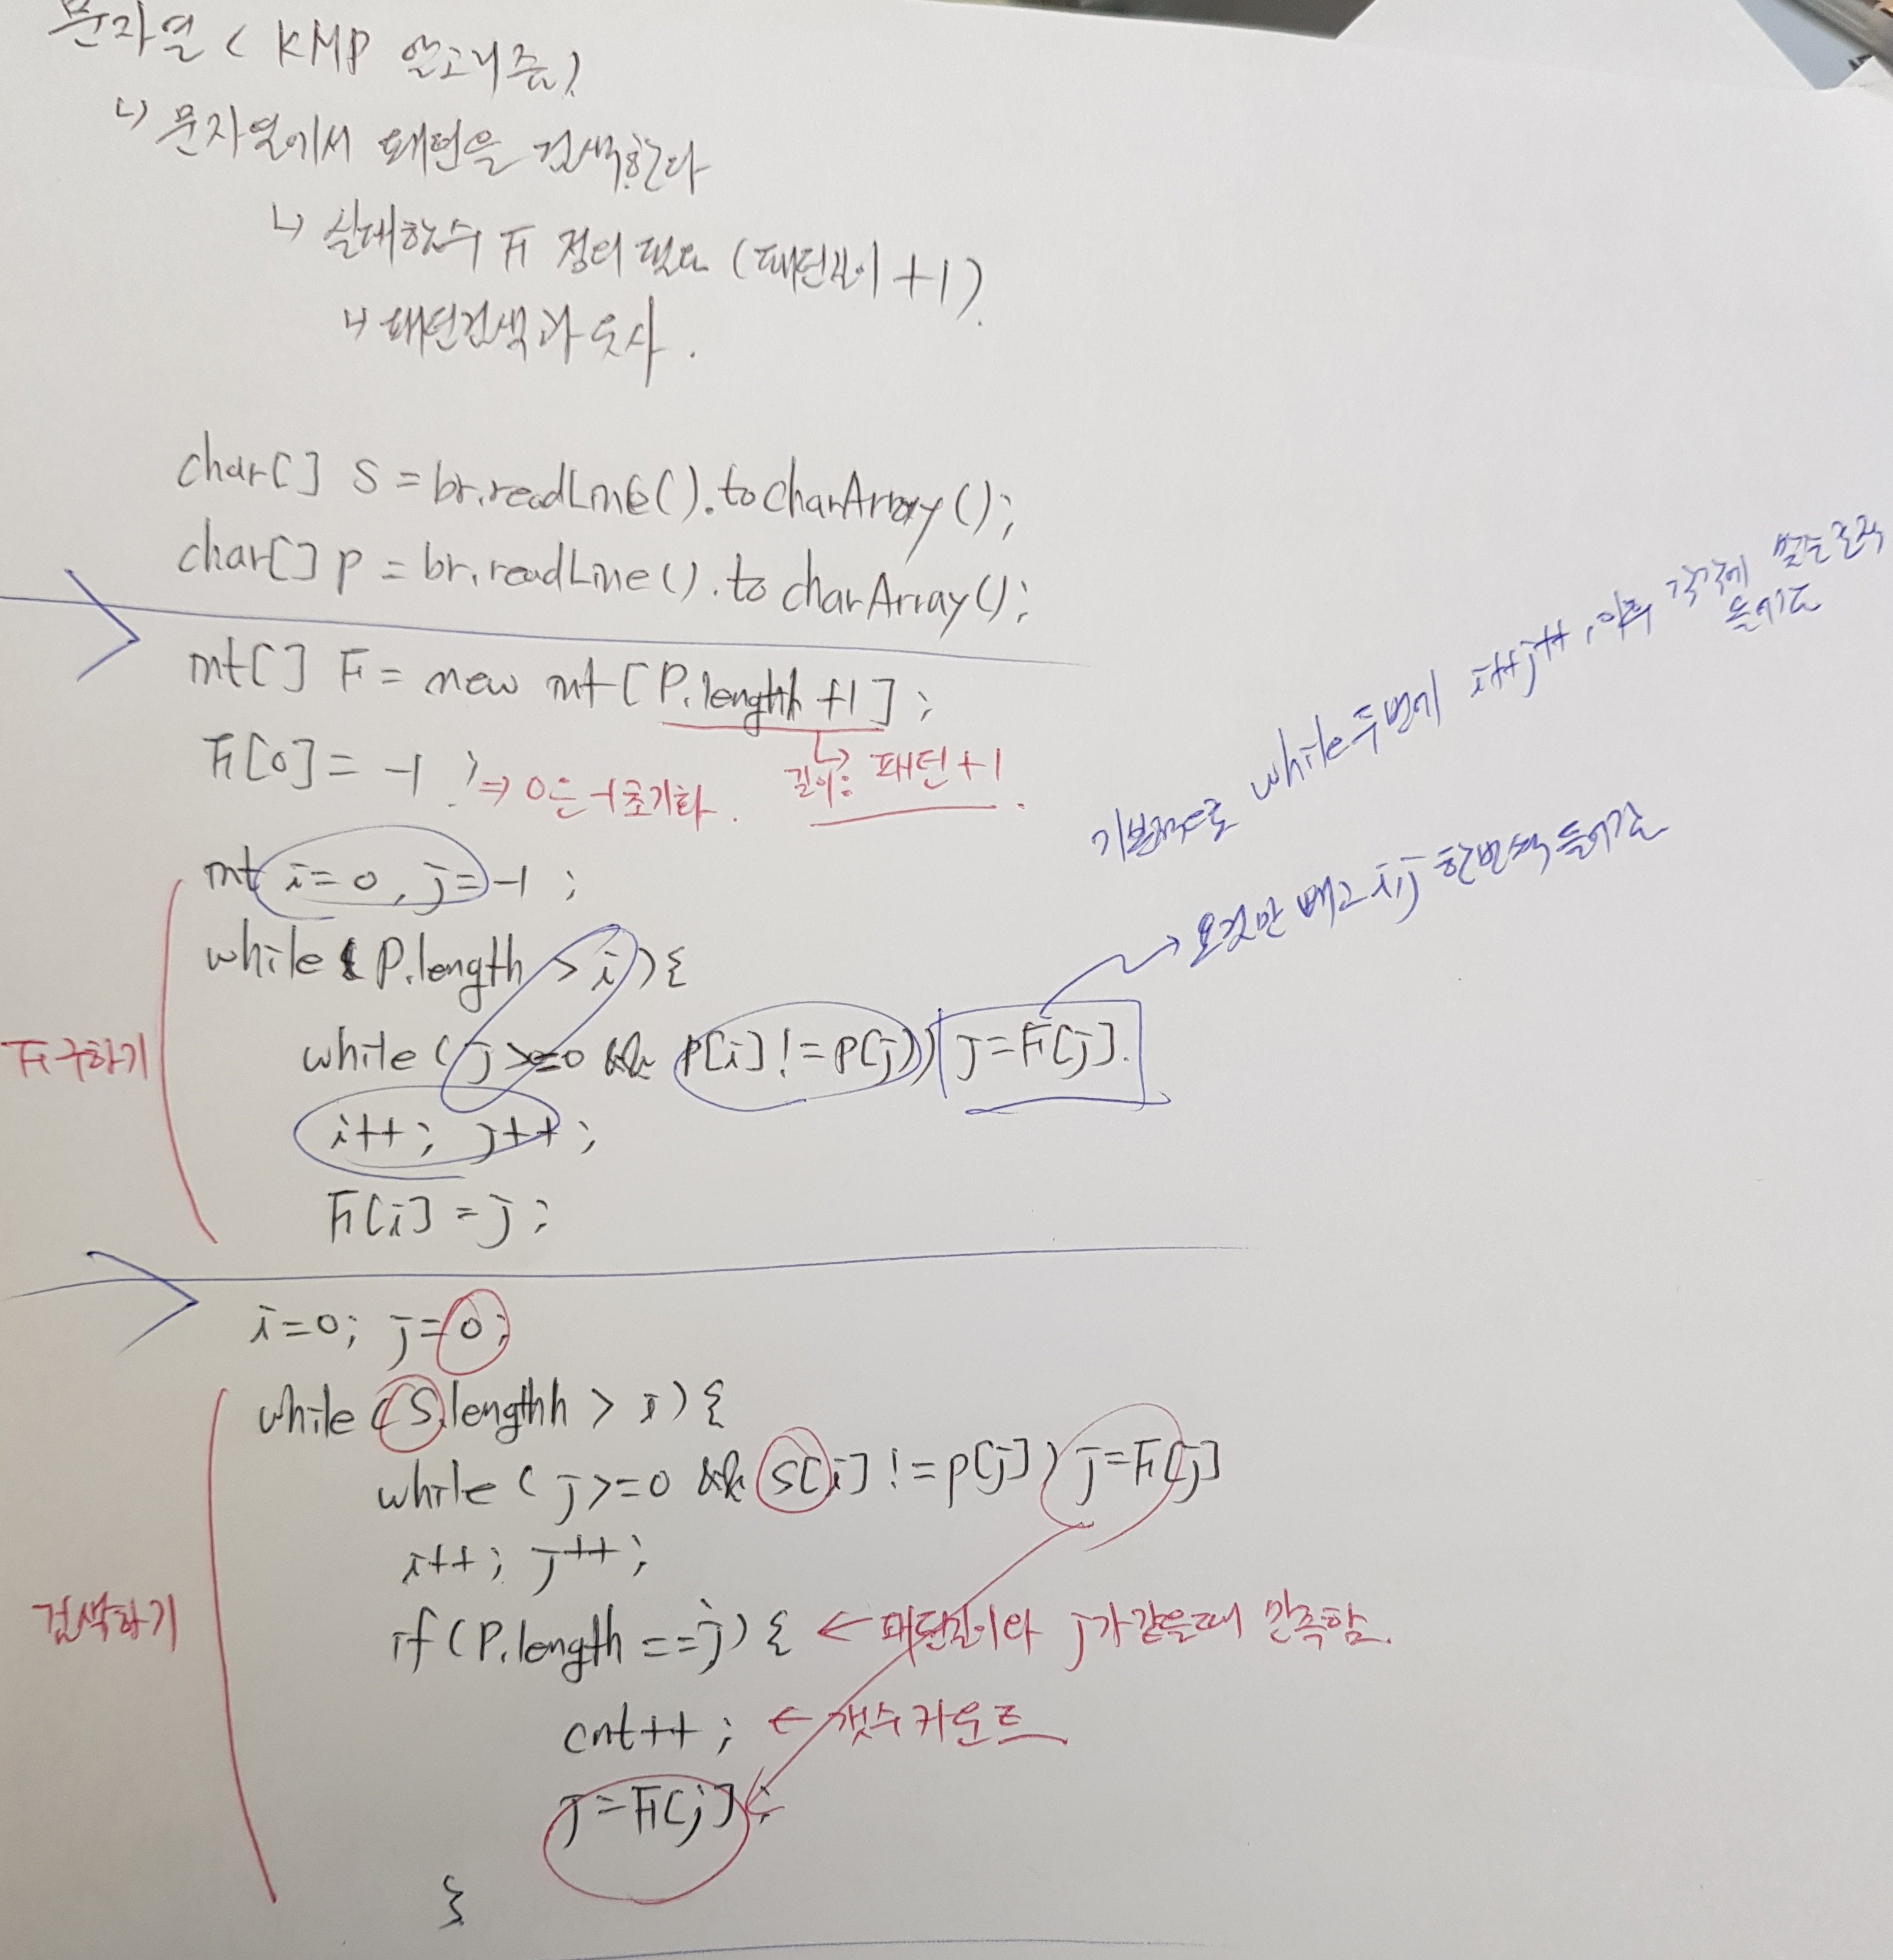 문자열 ( KMP 알고리즘)
↳ 문자열에서 패턴을 검색한다
↳ 실패함수 Fi 정의 필요 (패턴길이 +1).
↳ 패턴검색과 유사.
char[] S = br.readLine().toCharArray();
char[] p = br.readLine().to charArray();
int[] Fi = new int [P.length +1];
↳ 길이: 패턴+1.
Fi[0] = -1 ; ⇒ 0은 -1 초기화.
int i=0, j=-1 ;
while ( P.length > i ) {
while ( j >=0 && p[i] != p[j]) j=Fi[j].
i++; j++;
Fi[i] = j;
Fi 구하기
기본적으로 while 두번에 i++ j++, 이후 각각에 들어감
→ 요것만 빼고 i,j 한번씩 들어감
i=0; j=0;
while (S.length > i) {
while ( j>=0 && S[i] != p[j]) j=Fi[j]
i++; j++;
if (P.length == j) { ← 패턴길이와 j가 같을때 만족함.
cnt++; ← 갯수 카운트
j=Fi[j];
}
검색하기